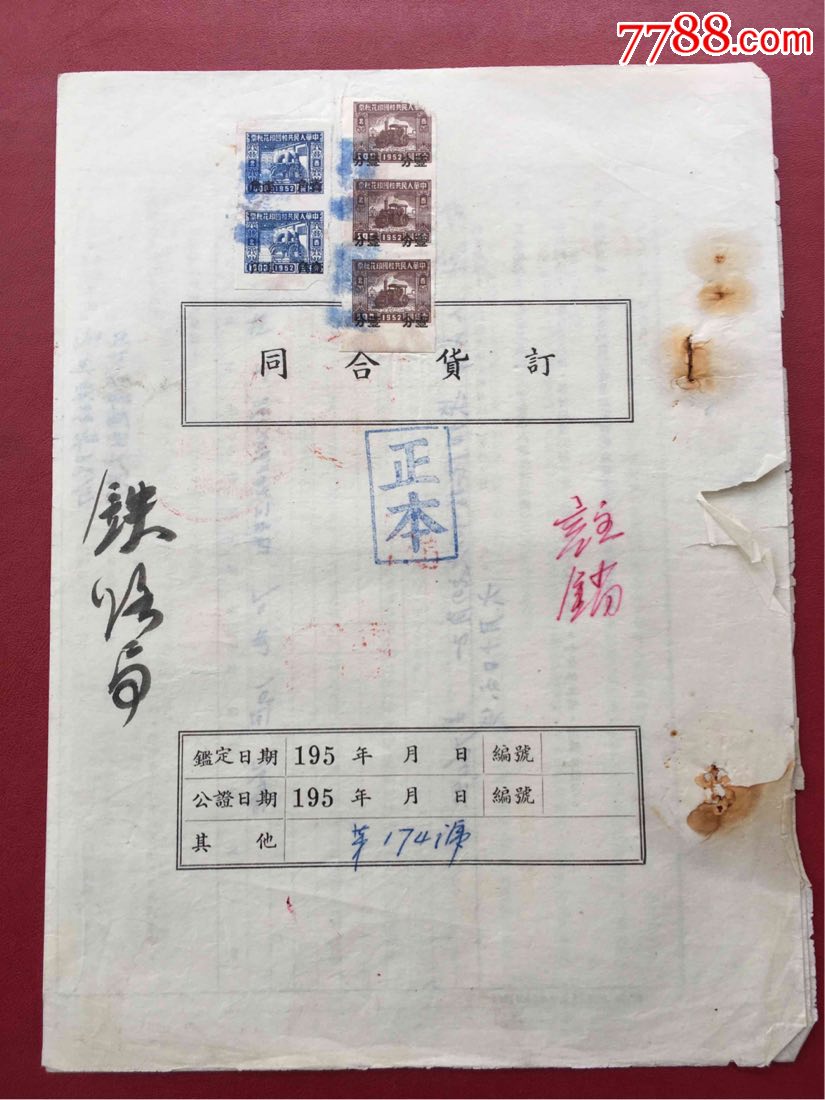 7788.com
票稅花印國和共民人華中
1952
票稅花印國和共民人華中
1952
票稅花印國和共民人華中
西 北
分壹 1952 分壹
票稅花印國和共民人華中
西 北
分壹 1952 分壹
票稅花印國和共民人華中
西 北
分壹 1952 分壹
同合貨訂
正本
註銷
鉄路局
鑑定日期 195 年 月 日 編號
公證日期 195 年 月 日 編號
其他 第174號